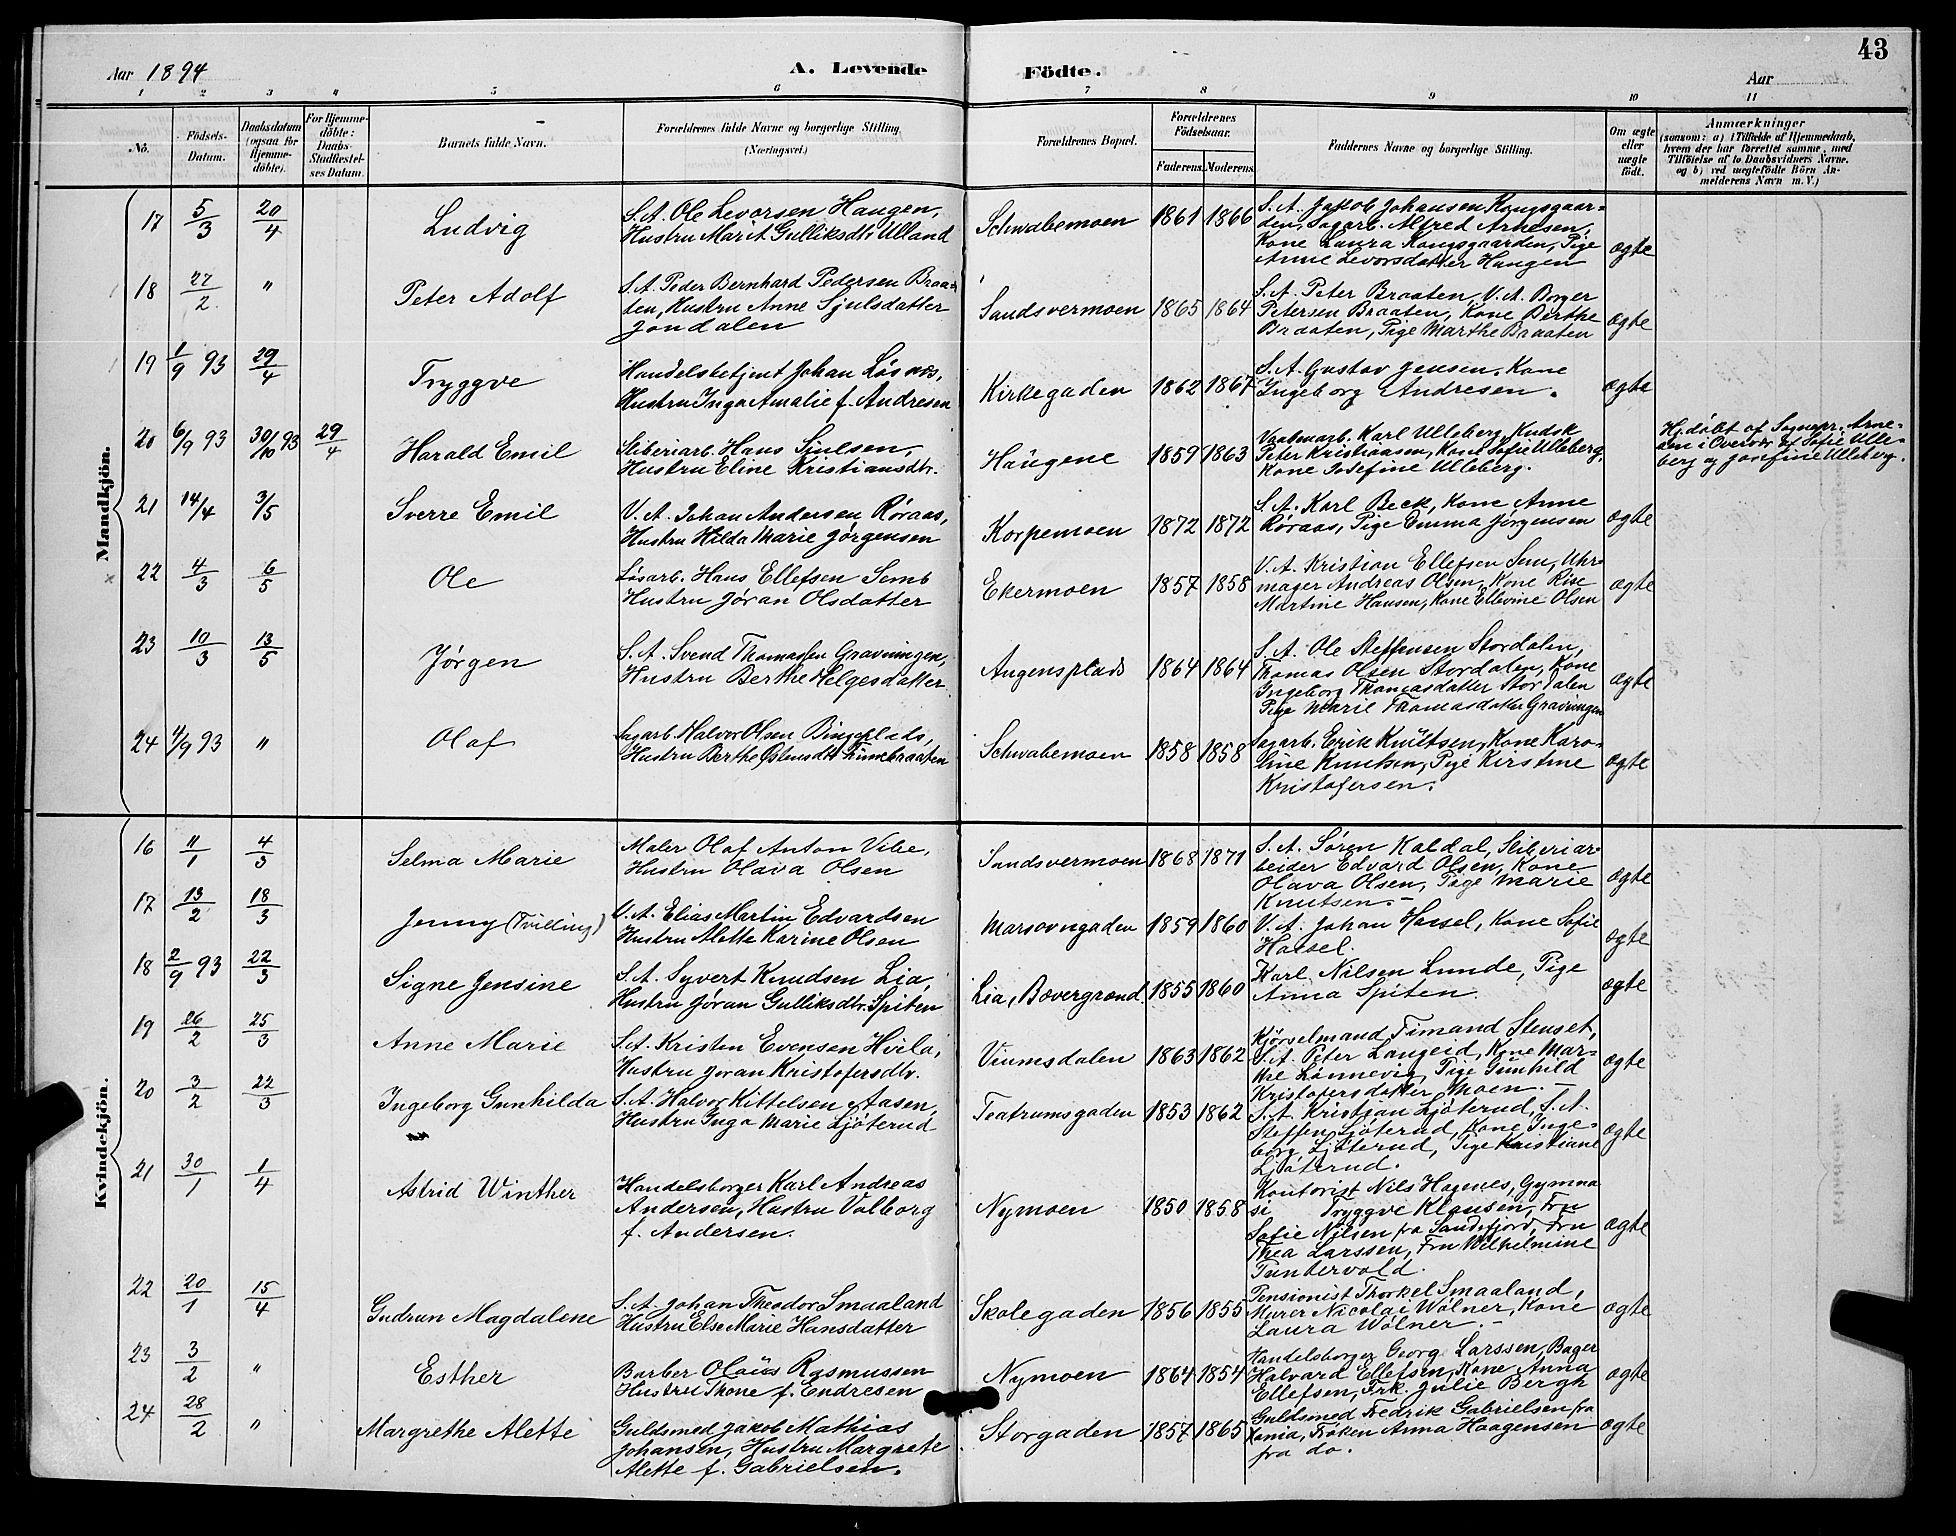 43
Aar 1894
A. Levende
Födte.
Aar
1 2 3 4 5 6 7 8 9 10 11
No.
Födsels-
Datum.
Daabsdatum
(ogsaa for
Hjemme-
döbte).
For Hjemme-
döbte:
Daabs-
Stadfæstel-
ses Datum.
Barnets fulde Navn.
Forældrenes fulde Navne og borgerlige Stilling.
(Næringsvei.)
Forældrenes Bopæl.
Forældrenes
Födselsaar.
Faderens. Moderens.
Faddernes Navne og borgerlige Stilling.
Om ægte
eller
uægte
födt.
Anmærkninger
(saasom: a) i Tilfælde af Hjemmedaab,
hvem der har forrettet samme, med
Tilföielse af to Daabsvidners Navne.
og b) ved uægtefödte Börn An-
melderens Navn m. V.)
Mandkjön.
17 5/3 20/4 Ludvig
S. A. Ole Levorsen Haugen,
Hustru Marit Gulliksdtr Ulland
Schwabemoen 1861 1866
S. A. Jakob Johansen Kongsgaar-
den, Sagarb. Alfred Arnesen,
Kone Laura Kongsgaarden, Pige
Anne Levorsdatter Haugen
ægte
18 22/2 " Peter Adolf
S. A. Peder Bernhard Pedersen Braa-
ten, Hustru Anne Sjulsdatter
Jondalen
Sandsvermoen 1865 1864
S. A. Peter Braaten, V. A. Borger
Petersen Braaten, Kone Berthe
Braaten, Pige Marthe Braaten
ægte
19 1/9 93 29/4 Tryggve
Handelsbetjent Johan Løsnæs,
Hustru Inga Amalie f. Andresen
Kirkegaden 1862 1867
S. A. Gustav Jensen, Kone
Ingeborg Andresen.
ægte
20 6/9 93 30/10 93 29/4 Harald Emil
Sliberiarb. Hans Sjulsen,
Hustru Eline Kristiansdtr.
Haugene 1859 1863
Vaabenarb. Karl Ulleberg, Kudsk
Peter Kristiansen, Kone Sofie Ulleberg,
Kone Josefine Ulleberg.
Hj. døbt af Sognepr. Arne-
sen i Overvær af Sofie Ulle-
berg og Josefine Ulleberg.
21 14/4 3/5 Sverre Emil
V. A. Johan Andersen Røraas,
Hustru Hilda Marie Jørgensen
Korpemoen 1872 1872
S. A. Karl Beck, Kone Anne
Røraas, Pige Emma Jørgensen
ægte
22 4/3 6/5 Ole
Løsarb. Hans Ellefsen Semb
Hustru Jøran Olsdatter
Ekermoen 1857 1858
V. A. Kristian Ellefsen Sem, Uhr-
mager Andreas Olsen, Kone Rise
Martine Hansen, Kone Ellevine Olsen
ægte
23 10/3 13/5 Jørgen
S. A. Svend Thomassen Gravningen,
Hustru Berthe Helgesdatter
Augensplads 1864 1864
S. A. Ole Steffensen Stordalen,
Thomas Olsen Stordalen, Kone
Ingeborg Thomasdatter Stordalen
Pige Marie Thomasdatter Gravningen
ægte
24 4/9 93 " Olaf
Sagarb. Halvor Olsen Bingeplads,
Hustru Berthe Østensdtr Tinnebraaten
Schwabemoen 1858 1858
Sagarb. Erik Knutsen, Kone Karo-
line Knutsen, Pige Kirstine
Kristofersen.
ægte
Kvindekjön.
16 11/1 4/3 Selma Marie
Maler Olaf Anton Vibe,
Hustru Olava Olsen
Sandsvermoen 1868 1871
S. A. Søren Kaldal, Sliberiar-
beider Edvard Olsen, Kone
Olava Olsen, Pige Marie
Knutsen.-
ægte
17 13/2 18/3 Jenny (Tvilling)
V. A. Elias Martin Edvardsen
Hustru Alette Karine Olsen
Marsovngaden 1859 1860
V. A. Johan Hassel, Kone Sofie
Hassel.
ægte
18 2/9 93 22/3 Signe Jensine
S. A. Syvert Knudsen Lia,
Hustru Jøran Gulliksdtr. Spiten
Lia, Bævergrænd 1855 1860
Karl Nilsen Lunde, Pige
Anna Spiten.
ægte
19 26/2 25/3 Anne Marie
S. A. Kristen Evensen Hvila,
Hustru Jøran Kristofersdtr.
Viumsdalen 1863 1862
Kjørselmand Timand Stenset,
S. A. Peter Langeid, Kone Mar-
the Lønnevig, Pige Gunhild
Kristofersdatter Moen. -
ægte
20 3/2 22/3 Ingeborg Gunhilda
S. A. Halvor Kittelsen Aasen,
Hustru Inga Marie Ljøterud
Teatrumsgaden 1853 1862
S. A. Kristian Ljøterud, S. A.
Steffen Ljøterud, Kone Inge-
borg Ljøterud, Pige Kristiane
Ljøterud.
ægte
21 30/1 1/4 Astrid Winther
Handelsborger Karl Andreas
Andersen, Hustru Valborg
f. Andersen.
Nymoen 1850 1858
Kontorist Nils Hagenes, Gymna
si Tryggve Klausen, Fru
Sofie Nilsen fra Sandefjord, Fru
Thea Larssen, Fru Wilhelmine
Tandervold.
ægte
22 20/1 15/4 Gudrun Magdalene
S. A. Johan Theodor Smaaland
Hustru Else Marie Hansdatter
Skolegaden 1856 1855
Pensionist Thorkel Smaaland,
Murer Nicolai Wølner, Kone
Laura Wølner. -
ægte
23 3/2 " Esther
Barber Olaüs Rasmussen
Hustru Thone f. Endresen
Nymoen 1864 1854
Handelsborger Georg Larssen, Bager
Halvard Ellefsen, Kone Anna
Ellefsen, Frk. Julie Bergh
ægte
24 28/2 " Margrethe Alette
Guldsmed Jakob Mathias
Johansen, Hustru Margrete
Alette f. Gabrielsen.
Storgaden 1857 1865
Guldsmed Fredrik Gabrielsen fra
Xania, Frøken Anna Haagensen
fra do.
ægte